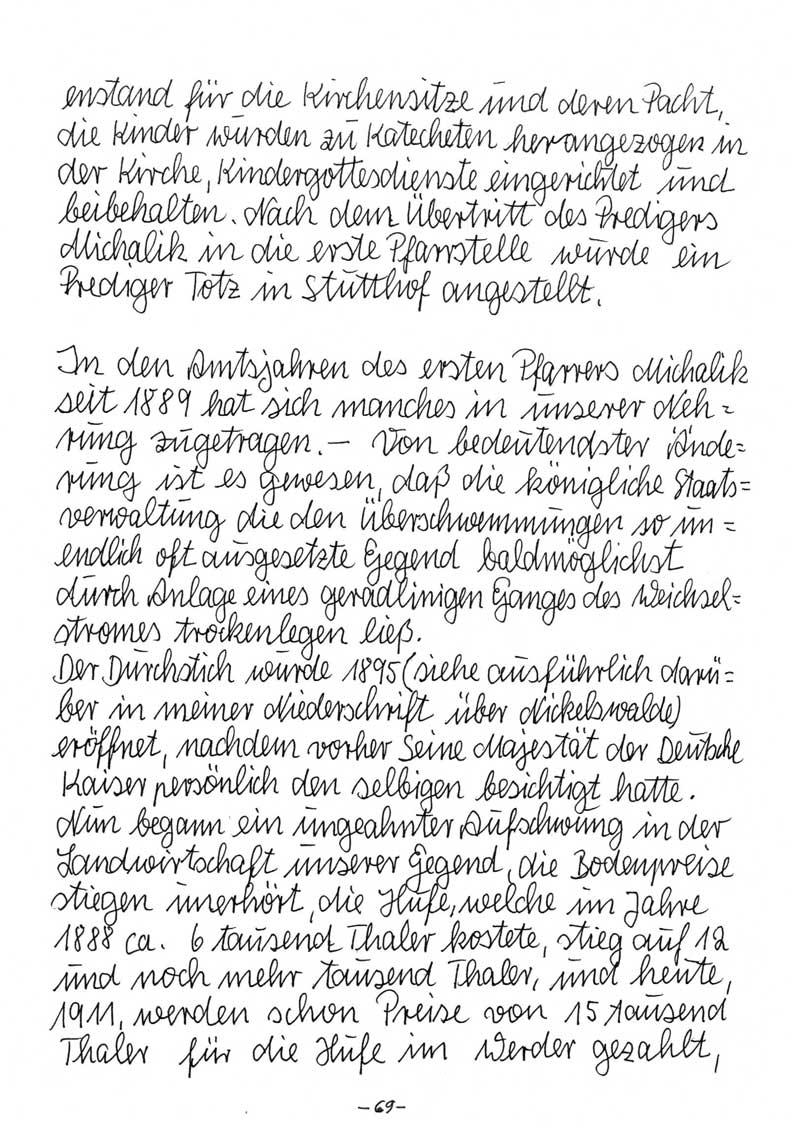 enstand für die Kirchensitze und deren Pacht,
die Kinder wurden zu Katecheten herangezogen in
der Kirche, Kindergottesdienste eingerichtet und
beibehalten. Nach dem Übertritt des Predigers
Michalik in die erste Pfarrstelle wurde ein
Prediger Totz in Stutthof angestellt.

In den Amtsjahren des ersten Pfarrers Michalik
seit 1889 hat sich manches in unserer Neh=
rung zugetragen. – Von bedeutendster Ände=
rung ist es gewesen, daß die königliche Staats=
verwaltung die den Überschwemmungen so un=
endlich oft ausgesetzte Gegend baldmöglichst
durch Anlage eines geradlinigen Ganges des Weichsel=
stromes trockenlegen ließ.
Der Durchstich wurde 1895 (siehe ausführlich darü=
ber in meiner Niederschrift über Nickelswalde)
eröffnet, nachdem vorher Seine Majestät der Deutsche
Kaiser persönlich den selbigen besichtigt hatte.
Nun begann ein ungeahnter Aufschwung in der
Landwirtschaft unserer Gegend, die Bodenpreise
stiegen unerhört, die Hufe, welche im Jahre
1888 ca. 6 tausend Thaler kostete, stieg auf 12
und noch mehr tausend Thaler, und heute,
1911, werden schon Preise von 15 tausend
Thaler für die Hufe im Werder gezahlt,
-69-